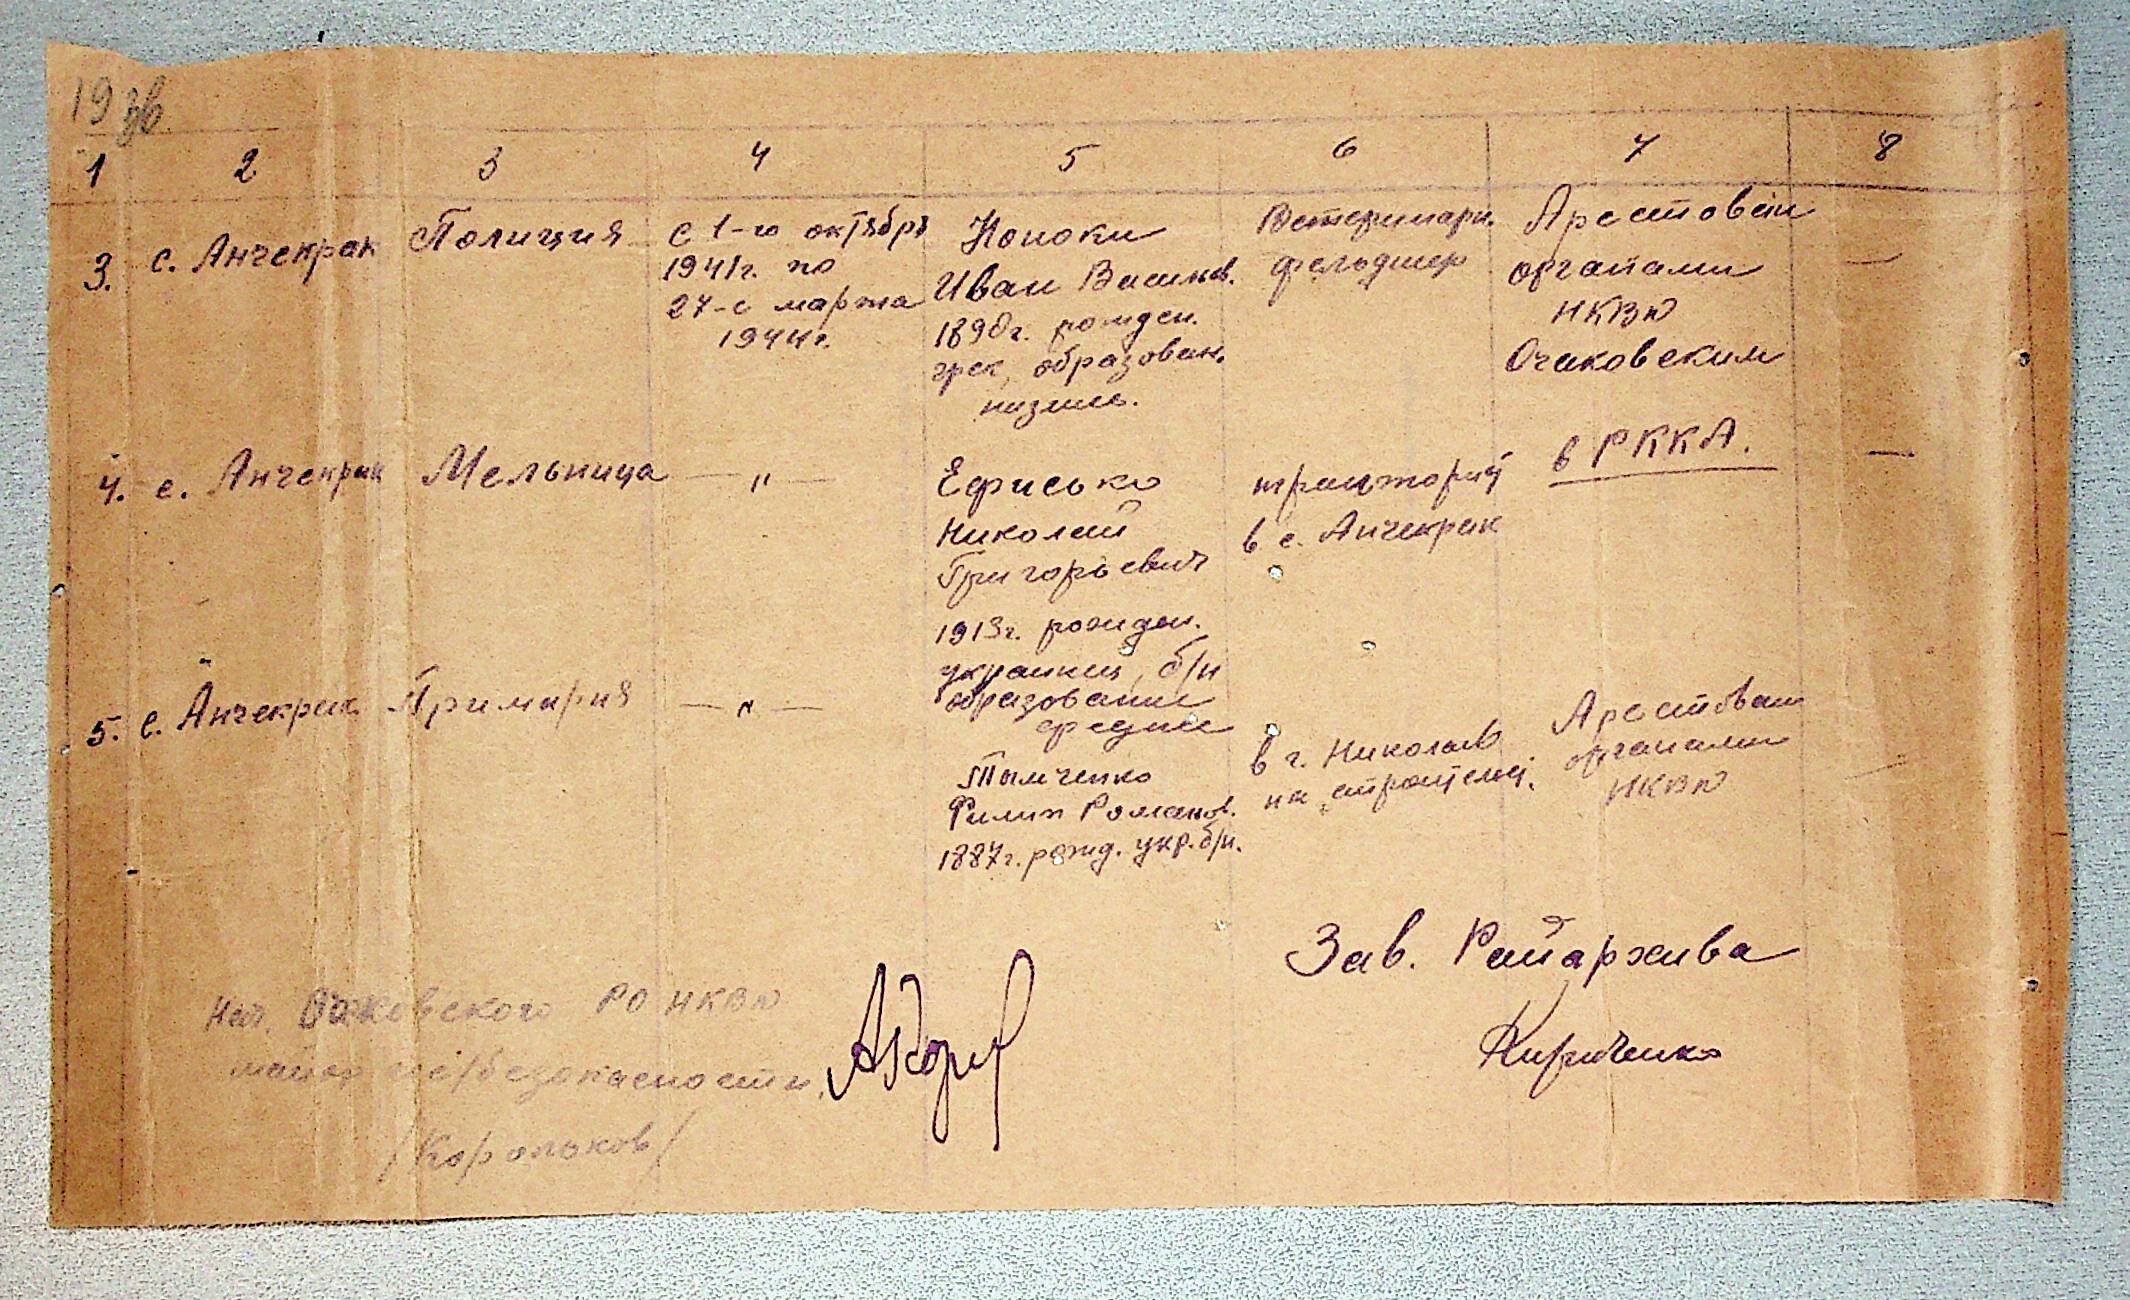 19 зв
1 2 3 4 5 6 7 8
3. с. Анчекрак Полиция с 1-го октября
1941г. по
27-е марта
1944г.
Иван Васильев.
1890г. рожден.
грек, образован.
низшее.
Ветеринарн.
фельдшер
Арестован
органами
НКВД
Очаковским
—
4. с. Анчекрак Мельница — " —
Николай
Григорьевич
1913г. рожден.
украинец, б/п
образование
среднее
в с. Анчекрак
в РККА.
—
5. с. Анчекрак Примария — " —
Тымченко
Филип Романов.
1887г. рожд. укр. б/п.
в г. Николаев
на
Арестован
органами
НКВД
—
Зав. Райархива
Кириченко
Нач. Очаковского РО НКВД
майор госбезопасности
/Корольков/